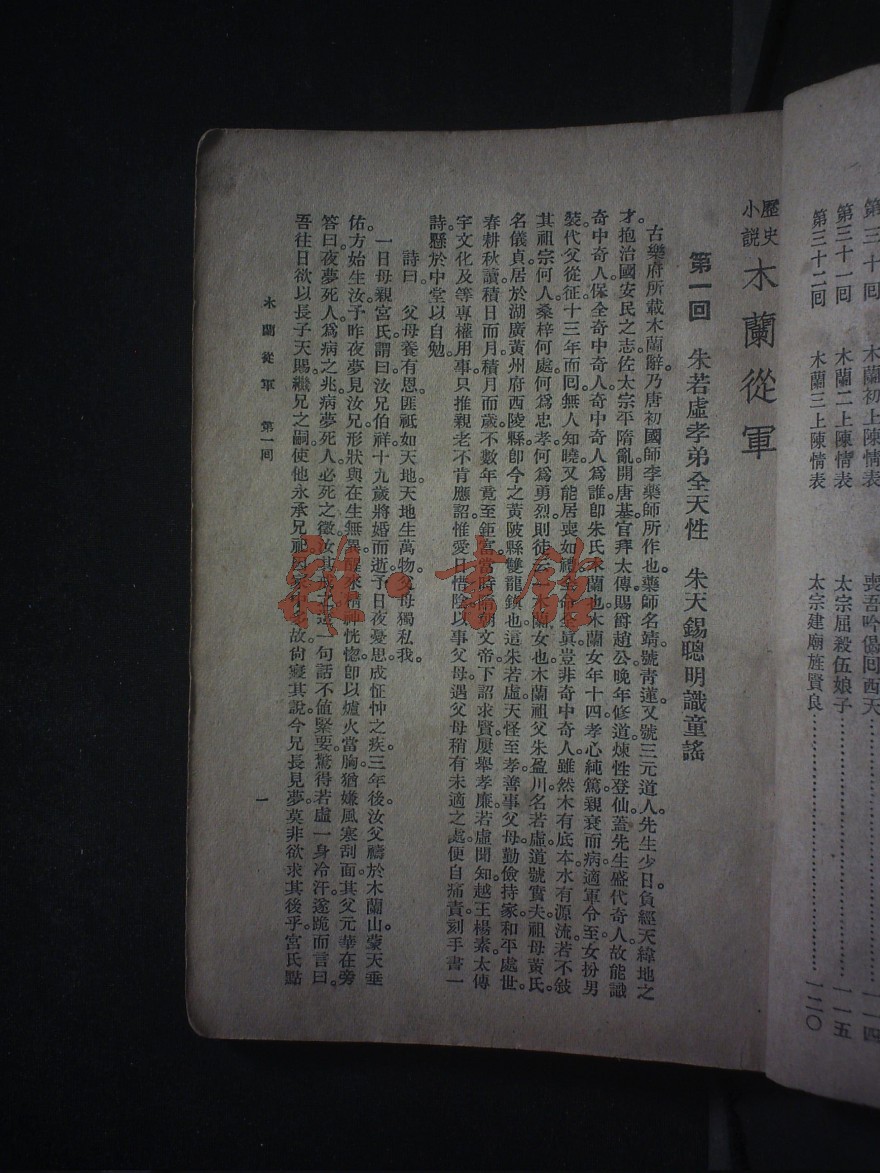 第三十回 木蘭初上陳情表 喪吾吟偈回西天……一一四
第三十一回 木蘭二上陳情表 太宗屈殺伍娘子……一一五
第三十二回 木蘭三上陳情表 太宗建廟旌賢良……一二〇
歷史小說 木蘭從軍
第一回 朱若虛孝弟全天性 朱天錫聰明識童謠
古樂府所載木蘭辭。乃唐初國師李藥師所作也。藥師名靖。號青蓮。又號三元道人。先生少日。負經天緯地之
才。抱治國安民之志。佐太宗平隋亂。開唐基。官拜太傅。賜爵趙公。晚年修道。煉性登仙。蓋先生盛代奇人。故能識
奇中奇人。保全奇中奇人。奇中奇人爲誰。卽朱氏木蘭也。木蘭女年十四。孝心純篤。親衰而病。適軍令至。女扮男
裝。代父從征。十三年而回。無人知曉。又能居喪如禮。全 眞。豈非奇中奇人。雖然木有底本。水有源流。若不敍
其祖宗何人。桑梓何處。何爲忠孝。何爲勇烈。則徒云一木蘭女也。木蘭祖父朱盈川。名若虛。道號實夫。祖母黃氏。
名儀貞。居於湖廣黃州府西陵縣。卽今之黃陂縣雙龍鎮也。這朱若虛天性至孝。善事父母。勤儉持家。和平處世。
春耕秋讀。積日而月。積月而歲。不數年竟至鉅富。當時隋朝文帝下詔求賢。屢舉孝廉。若虛聞知越王楊素。太傅
宇文化及等專權用事。只推親老不肯應詔。惟愛日惜陰。以事父母。遇父母稍有未適之處。便自痛責。刻手書一
詩。懸於中堂以自勉。
詩曰。 父母養有恩。匪祇如天地。天地生萬物。父母獨私我。
一日母親宮氏謂曰。汝兄伯祥。十九歲將婚而逝。予日夜憂思。成怔忡之疾。三年後。汝父禱於木蘭山。蒙天垂
佑。方始生汝。予昨夜夢見汝兄。形狀與在生無異。醒來精神恍惚。卽以爐火當胸。猶嫌風寒刮面。其父元華在旁
答曰。夜夢死人。爲病之兆。病夢死人。必死之徵。汝其戒之。這一句話不値緊要。驚得若虛一身冷汗。遂跪而言曰。
吾往日欲以長子天賜。繼兄之嗣。使他永承兄祀。因家中多故。尙寢其說。今兄長見夢。莫非欲求其後乎。宮氏點
木蘭從軍 第一回
一
雜·書館